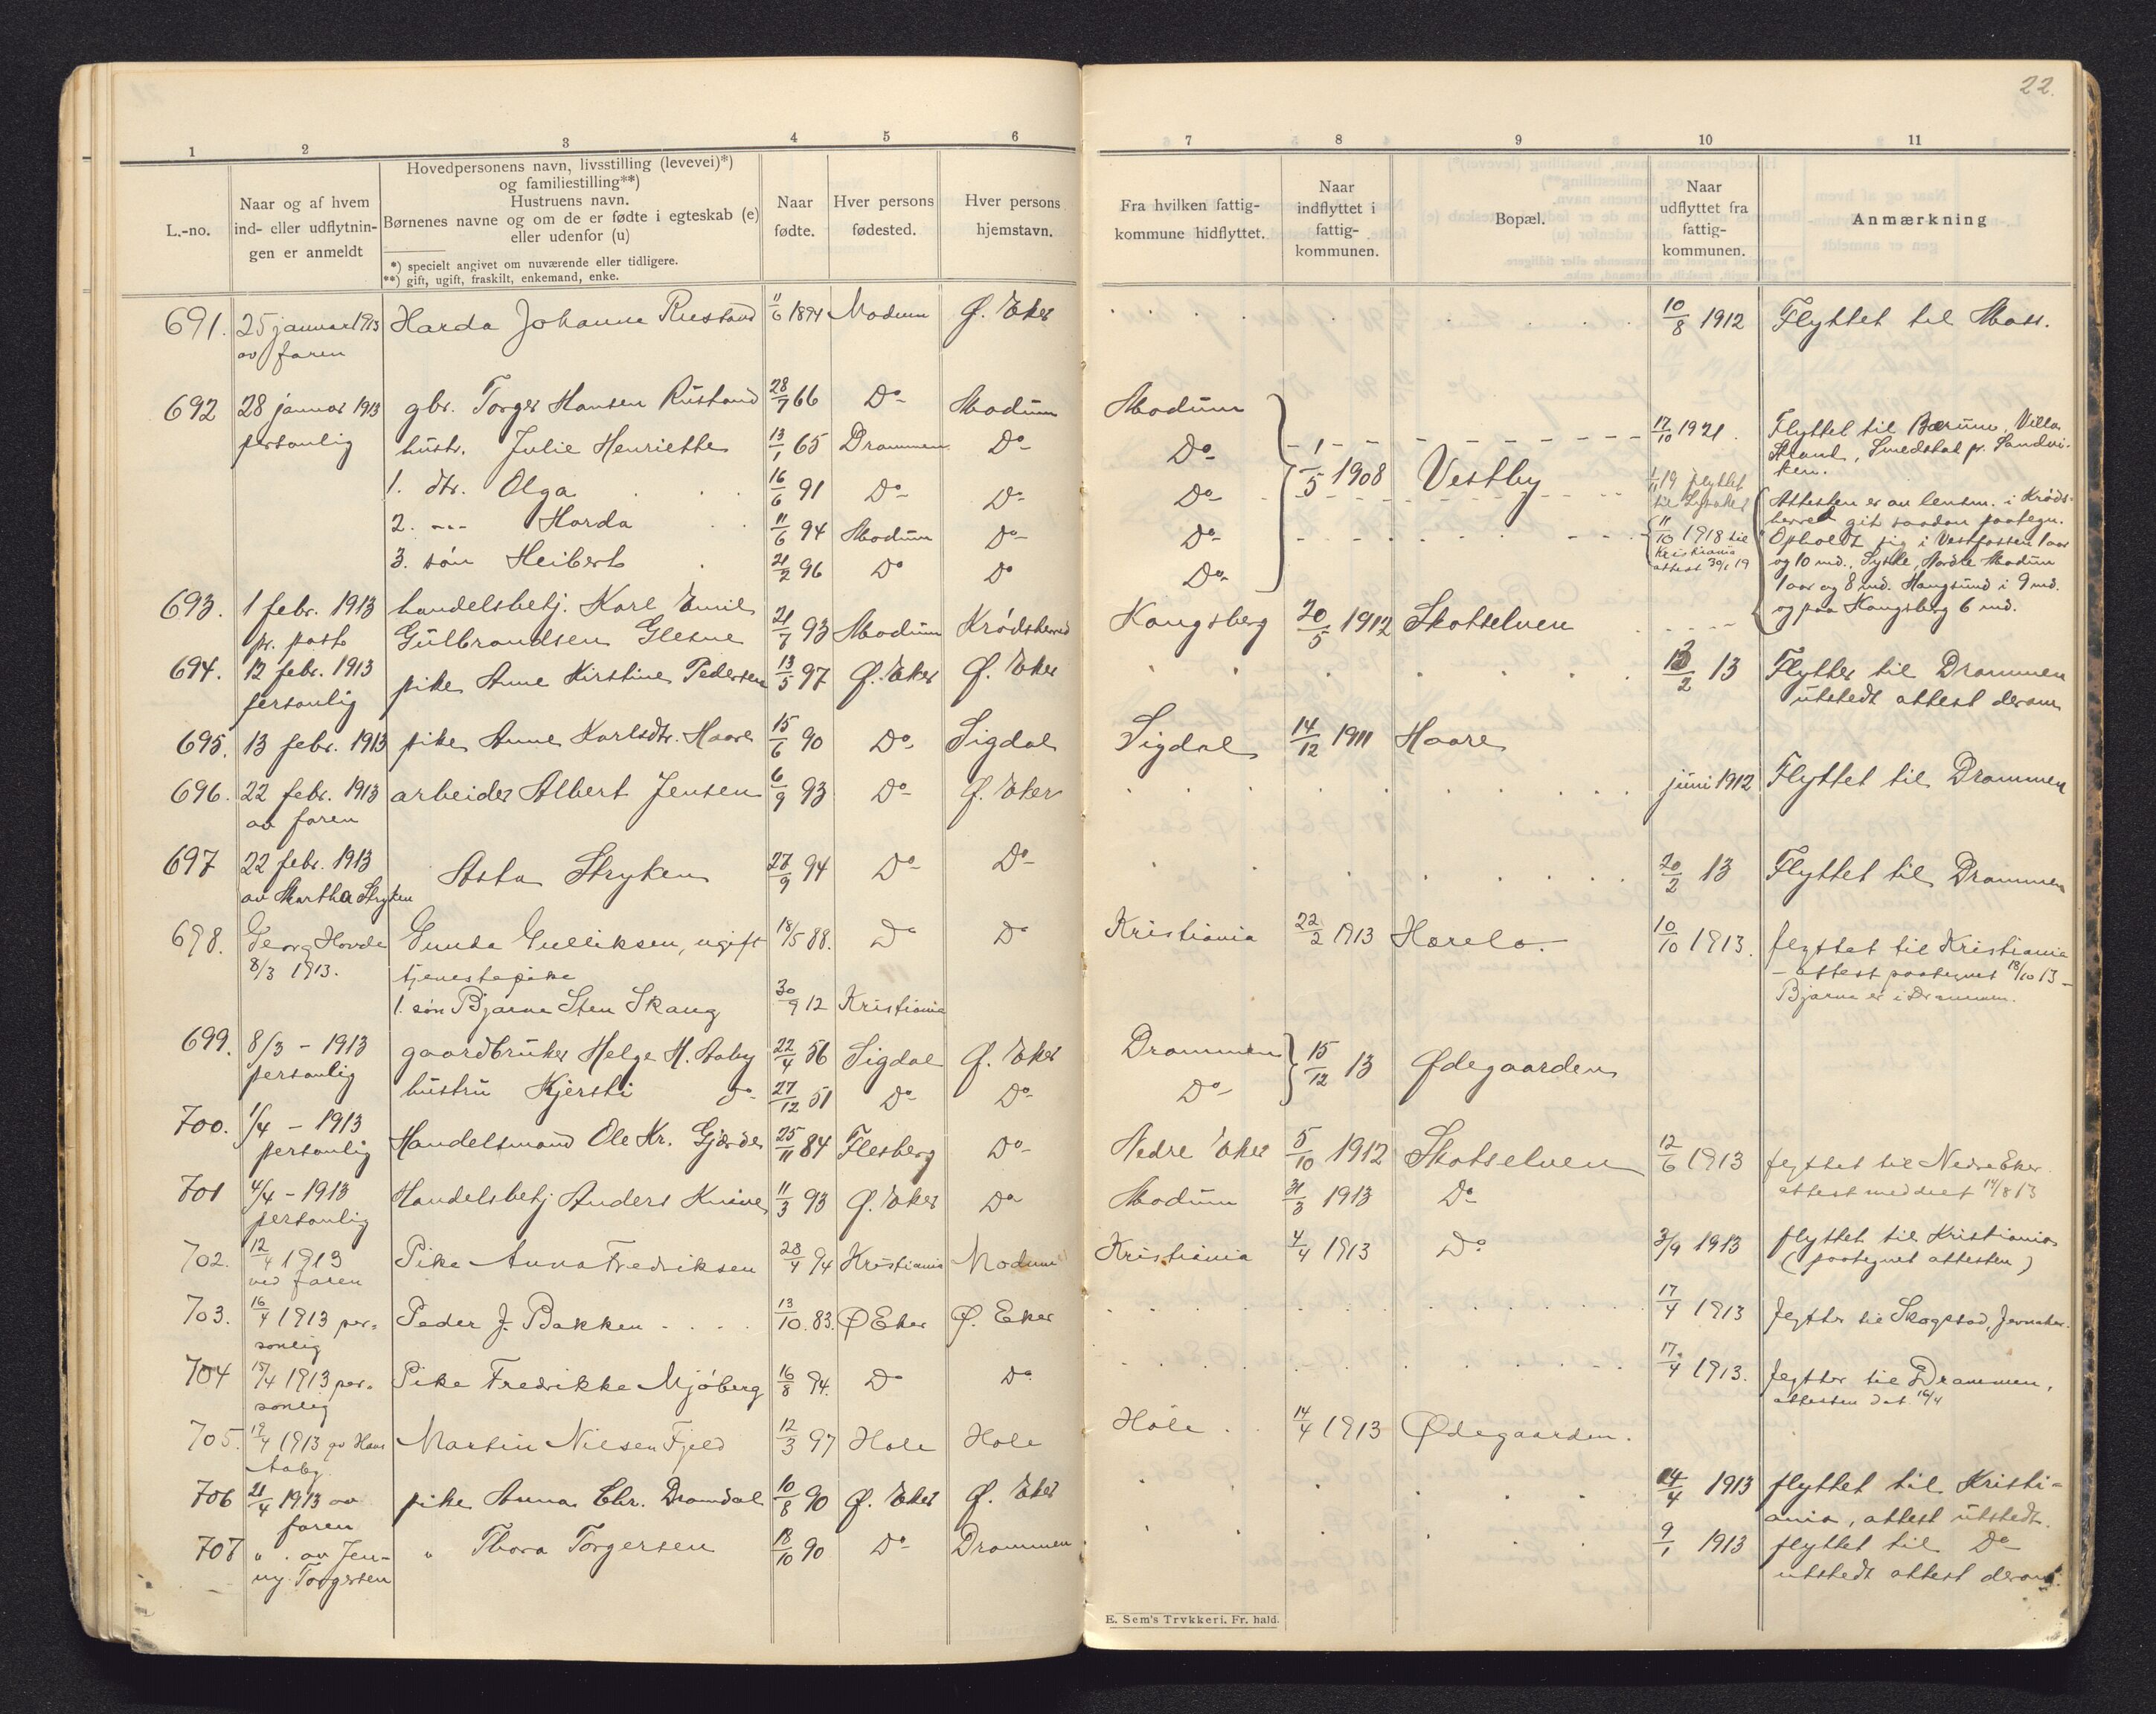 22.
1 2 3 4 5 6
L.-no.
Naar og af hvem
ind- eller udflytnin-
gen er anmeldt
Hovedpersonens navn, livsstilling (levevei)*)
og familiestilling**)
Hustruens navn.
Børnenes navne og om de er fødte i egteskab (e)
eller udenfor (u)
*) specielt angivet om nuværende eller tidligere.
**) gift, ugift, fraskilt, enkemand, enke.
Naar
fødte.
Hver persons
fødested.
Hver persons
hjemstavn.
691. 25 januar 1913 Harda Johanne Rustand 11/6 1894 Modum Ø. Eker
av faren
692 28 januar 1913 gbr. Torger Hansen Rustand 28/7 66 Do Modum
personlig hustr. Julie Henriette 13/1 65 Drammen Do
1. dtr. Olga 16/6 91 Do Do
2. -"- Harda 11/6 94 Modum Do
3. søn Heibert 21/2 96 Do Do
693. 1 febr. 1913 handelsbetj. Karl Emil
pr. post Gulbrandsen Glesne 21/7 93 Modum Krødsherred
694. 12 febr. 1913 pike Anne Kirstine Pedersen 13/5 97 Ø. Eker Ø. Eker
personlig
695. 13 febr. 1913 pike Anne Karlsdtr. Haare 15/6 90 Do Sigdal
696. 22 febr. 1913 arbeider Albert Jensen 6/9 93 Do Ø. Eker
av faren
697 22 febr. 1913 Asta Stryken 27/9 94 Do Do
av Martha Stryken
698. Georg Hovde Gunda Gulliksen, ugift 18/5 88. Do Do
8/3 1913. tjenestepike
1. søn Bjarne Sten Skaug 30/9 12 Kristiania
699. 8/3 - 1913 gaardbruker Helge H. Aaby 22/4 56 Sigdal Ø. Eker
personlig hustru Kjersti Do 27/12 51 Do Do
700. 1/4 - 1913 Handelsmand Ole Kr. Gjærde 25/11 84 Flesberg Do
personlig
701 4/4 - 1913 Handelsbetj Anders Knive 11/3 93 Ø. Eker Do
personlig
702. 12/4 1913 Pike Anna Fredriksen 28/4 94 Kristiania Modum
ved faren
703. 16/4 1913 per- Peder J. Bakken 13/10. 83. Ø Eker Ø. Eker
sonlig
704 15/4 1913 per- Pike Fredrikke Mjøberg 16/8 94. Do Do
sonlig
705. 19/4 1913 av Hans Martin Nilsen Fjeld 12/3 97 Hole Hole
Aaby.
706 21/4 1913 av pike Anna Chr. Dramdal 10/8 90 Ø. Eker Ø. Eker
faren
707 " . av Jen- " Thora Torgersen 18/10 90 Do Drammen
ny Torgersen
7 8 9 10 11
Fra hvilken fattig-
kommune hidflyttet.
Naar
indflyttet i
fattig-
kommunen.
Bopæl.
Naar
udflyttet fra
fattig-
kommunen.
Anmærkning
10/8 1912 Flyttet til Moss.
Modum
Do 1/5 1908 Vestby 17/10 1921. Flyttet til Bærum, Villa
Smedstal pr. Sandvi-
ken.
Do 1/11 19 flyttet
til Lysaker
Do 11/10 1918 til
Kristiania
attest 30/1 19
Do
Attesten er av lensm. i Kröds-
herred git saadan paategn.
Opholdt sig i Vestfossen 1 aar
og 10 md., Sysle, Nordre Modum
1 aar og 8 md. Haugsund i 9 md.
og paa Kongsberg 6 md.
Kongsberg 20/5 1912 Skotselven
13/2 13 Flytter til Drammen
utstedt attest derom
Sigdal 14/12 1911 Haare
juni 1912 Flyttet til Drammen
20/2 13 Flyttet til Drammen
Kristiania 22/2 1913 Horelo. 10/10 1913. flyttet til Kristiania
- attest paategnet 13/10 13 -
Bjarne er i Drammen.
Drammen 15/12 13 Ødegaarden
Do
Nedre Eker 5/10 1912 Skotselven 12/6 1913 flyttet til Nedre Eker.
attest meddelt 14/8 13
Modum 31/3 1913 Do
Kristiania 4/4 1913 Do 3/9 1913 flyttet til Kristiania
(paategnet attesten)
17/4 1913 flytter til Skogstad, Jevnaker.
17/4 1913. flytter til Drammen,
attesten dat. 16/4
Hole 14/4 1913 Ødegaarden.
24/4 1913 flyttet til Kristi-
ania, attest utstedt.
9/1 1913 flyttet til Do
utstedt attest derom.
E. Sem's Trykkeri. Fr. hald.